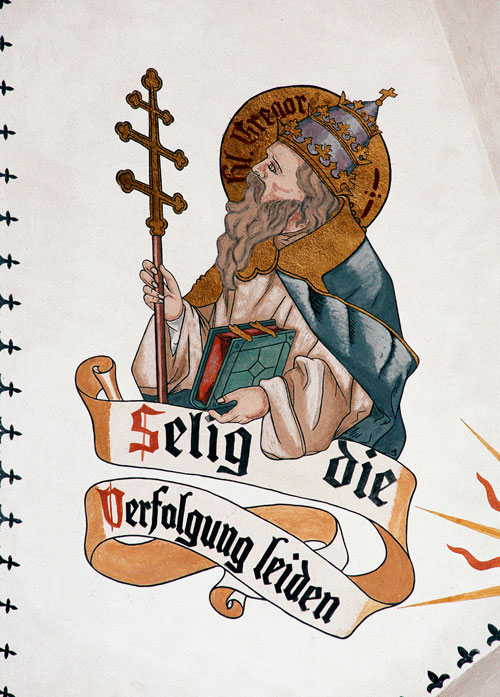 Hl. Gregor
Selig die
Verfolgung leiden